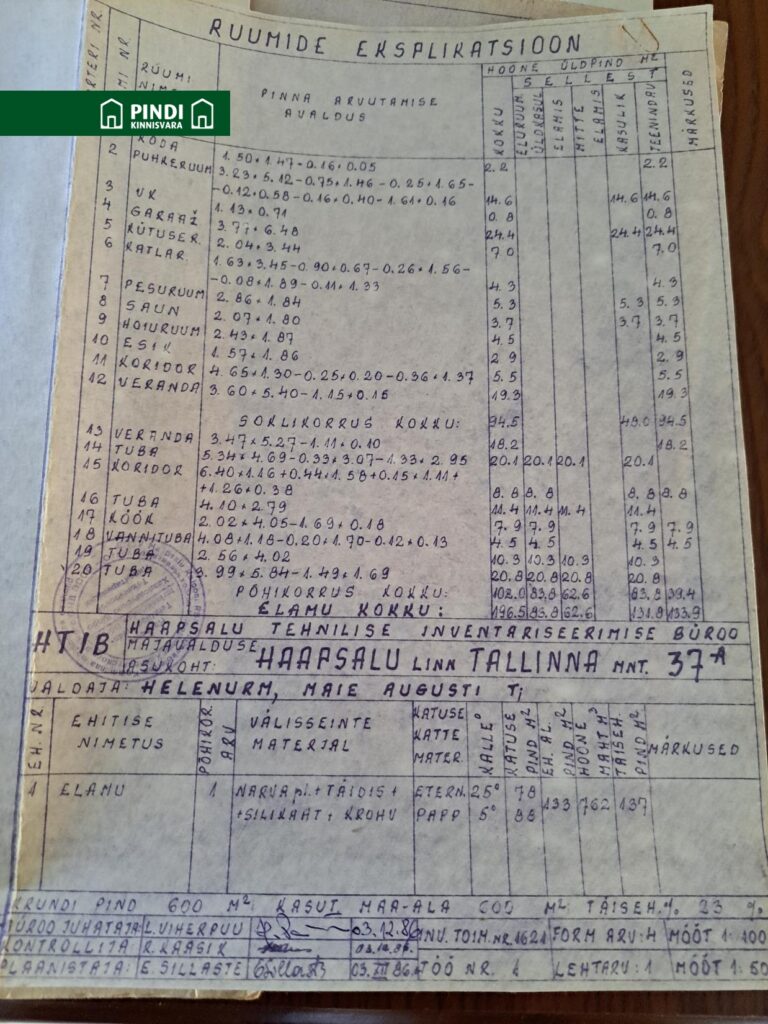 RUUMIDE EKSPLIKATSIOON
PINDI
KINNISVARA
RUUMI
PINNA ARVUTAMISE
AVALDUS
HOONE ÜLDPIND M2
SELLEST
KOKKU
ELURUUM.
ÜLDKASUL
ELAMIS
MITTE
ELAMIS
KASULIK
TEENINDAV
MÄRKUSED
KODA 1.50×1.47-0.16×0.05 2.2 2.2
2 PUHKERUUM 3.23×5.12-0.75×1.46-0.25×1.65-
-0.12×0.58-0.16×0.40-1.61×0.16 14.6 14.6 14.6
3 VK 1.13×0.71 0.8 0.8
4 GARAAŽ 3.77×6.48 24.4 24.4 24.4
5 KÜTUSER. 2.04×3.44 7.0 7.0
6 KATLAR. 1.63×3.45-0.90×0.67-0.26×1.56-
-0.08×1.89-0.11×1.33 4.3 4.3
7 PESURUUM 2.86×1.84 5.3 5.3 5.3
8 SAUN 2.07×1.80 3.7 3.7 3.7
9 HOIURUUM 2.43×1.87 4.5 4.5
10 ESIK 1.57×1.86 2.9 2.9
11 KORIDOR 4.65×1.30-0.25×0.20-0.36×1.37 5.5 5.5
12 VERANDA 3.60×5.40-1.15×0.15 19.3 19.3
SOKLIKORRUS KOKKU: 94.5 48.0 94.5
13 VERANDA 3.47×5.27-1.11×0.10 18.2 18.2
14 TUBA 5.34×4.69-0.33×3.07-1.33×2.95 20.1 20.1 20.1 20.1
15 KORIDOR 6.40×1.16+0.44×1.58+0.15×1.11+
+1.26×0.38 8.8 8.8 8.8 8.8
16 TUBA 4.10×2.79 11.4 11.4 11.4 11.4
17 KÖÖK 2.02×4.05-1.69×0.18 7.9 7.9 7.9 7.9
18 VANNITUBA 4.08×1.18-0.20×1.70-0.12×0.13 4.5 4.5 4.5 4.5
19 TUBA 2.56×4.02 10.3 10.3 10.3 10.3
20 TUBA 3.99×5.84-1.49×1.69 20.8 20.8 20.8 20.8
PÕHIKORRUS KOKKU: 102.0 83.8 62.6 83.8 39.4
ELAMU KOKKU: 196.5 83.8 62.6 131.8 133.9
HTIB HAAPSALU TEHNILISE INVENTARISEERIMISE BÜROO
MAJAVALDUSE
ASUKOHT: HAAPSALU LINN TALLINNA MNT. 37A
VALDAJA: HELENURM, MAIE AUGUSTI T;
EH. NR.
EHITISE
NIMETUS
PÕHIKOR.
ARV
VÄLISSEINTE
MATERJAL
KATUSE
KATTE
MATER.
KALLE°
KATUSE
PIND M2
EH. AL.
PIND M2
HOONE
MAHT M3
TÄISEH.
PIND M2
MÄRKUSED
1 ELAMU 1 NARVA pl.+TÄIDIS+ ETERN. 25° 78 133 762 137
+SILIKAAT+KROHV PAPP 5° 88
KRUNDI PIND 600 M2 KASUT MAA-ALA 600 M2 TÄISEH.% 23 %
BÜROO JUHATAJA L. VIHERPUU 03.12.86 INV. TOIM. NR. 1621 FORM ARV: 4 MÕÕT 1:100
KONTROLLIJA R. KAASIK 03.12.86.
PLAANISTAJA: E. SILLASTE 03. XII 86. TÖÖ NR. 1 LEHT ARV: 1 MÕÕT 1:50